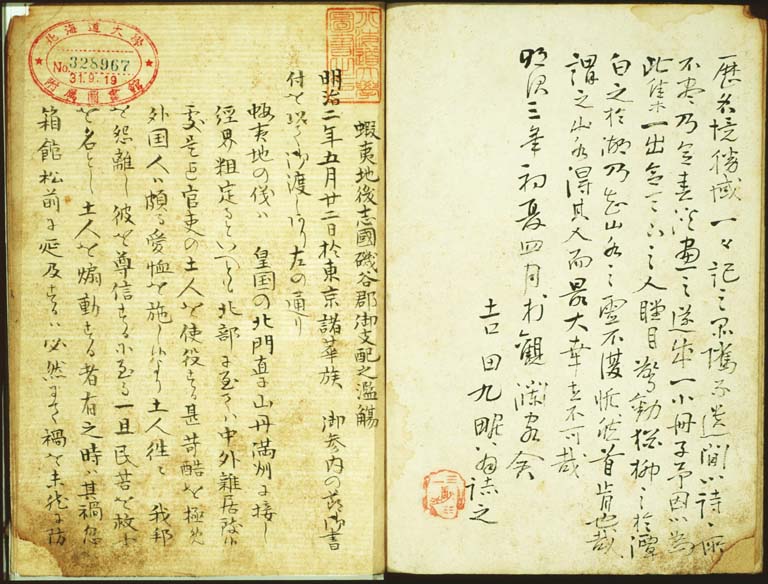 一々記之不
不遺間以詩、所
不尽乃令春
画之遂成一小冊子予因以為
此集一出令天下之人瞠目驚歎
之於潭
白之於湖乃知山水之霊不復恍然首肯也哉
謂之山水得其人而最大幸
不可哉
明治三年初夏四月於觀瀾客舎
吉田九
誌之
蝦夷地後志國磯谷郡御支配之濫觴
明治二年五月廿二日於東京諸華族 御参内の節御書
付を以て御渡し相成左の通り
蝦夷地の儀ハ 皇国の北門直に山丹満州に接し
經界粗定るといへとも北部に至てハ中外雑居致候
処是迠官吏の土人を使役する甚苛酷を極め
外国人ハ頗る愛恤を施し候より土人往々 我邦
を怨離し彼を尊信するに至る一旦民苦を救ふ
を名とし土人を煽動する者有之時ハ其禍忽
箱館松前に延及するハ必然にて禍を未然に防
北海道大學
No. 328967
31.9.19
附属圖書館